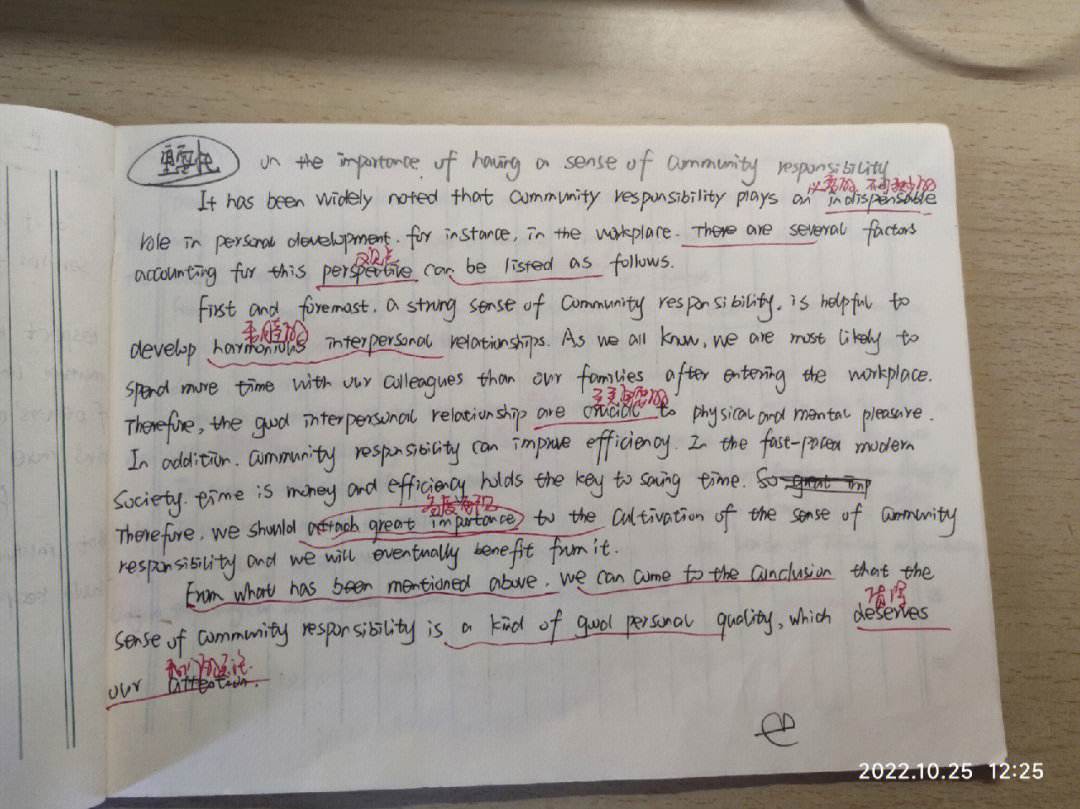 on the importance of having a sense of community responsibility
必要的,不可缺少的
It has been widely noted that community responsibility plays an indispensable
role in personal development. for instance, in the workplace. There are several factors
观点
accounting for this perspective can be listed as follows.
First and foremost, a strong sense of community responsibility. is helpful to
和谐的
develop harmonious interpersonal relationships. As we all know, we are most likely to
spend more time with our colleagues than our families after entering the workplace.
至关重要的
Therefore, the good interpersonal relationship are crucial to physical and mental pleasure.
In addition. Community responsibility can improve efficiency. In the fast-paced modern
society. time is money and efficiency holds the key to saving time. So great imp
高度重视
Therefore, we should attach great importance to the cultivation of the sense of community
responsibility and we will eventually benefit from it.
From what has been mentioned above, we can come to the conclusion that the
值得
sense of community responsibility is a kind of good personal quality, which deserves
我们的关注.
our attention.
2022.10.25 12:25